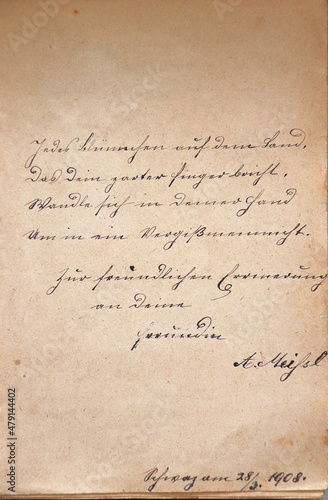 Jedes Blümchen auf dem Land,
Das Dein zarter Finger bricht,
Wandle sich in Deiner Hand
Um in ein Vergißmeinnicht.
Zur freundlichen Erinnerung
an Deine
Freundin
A. Meißl
Schwaz am 28/3. 1908.
Adobe Stock | #479144402